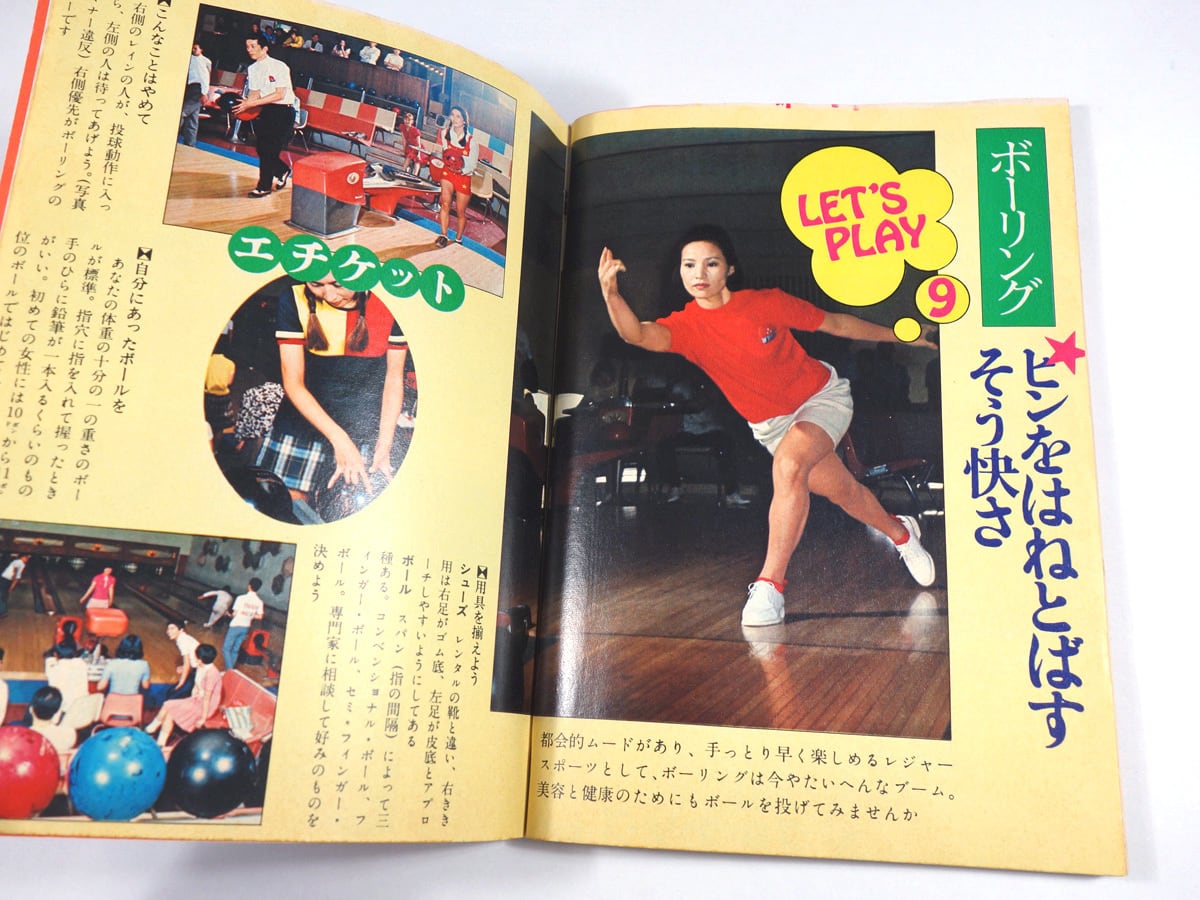 ボーリング
ピンをはねとばす
そう快さ
LET'S
PLAY
9
都会的ムードがあり、手っとり早く楽しめるレジャー
スポーツとして、ボーリングは今やたいへんなブーム。
美容と健康のためにもボールを投げてみませんか
エチケット
こんなことはやめて
右側のレインの人が、投球動作に入っ
ら、左側の人は待ってあげよう。(写真
ナー違反)右側優先がボーリングの
ーです
自分にあったボールを
あなたの体重の十分の一の重さのボー
ルが標準。指穴に指を入れて握ったとき
手のひらに鉛筆が一本入るくらいのもの
がいい。初めての女性には10㌽から11㌽
位のボールではじめ
用具を揃えよう
シューズ レンタルの靴と違い、右きき
用は右足がゴム底、左足が皮底とアプロ
ーチしやすいようにしてある
ボール スパン(指の間隔)によって三
種ある。コンベンショナル・ボール、フ
ィンガー・ボール、セミ・フィンガー・
ボール。専門家に相談して好みのものを
決めよう